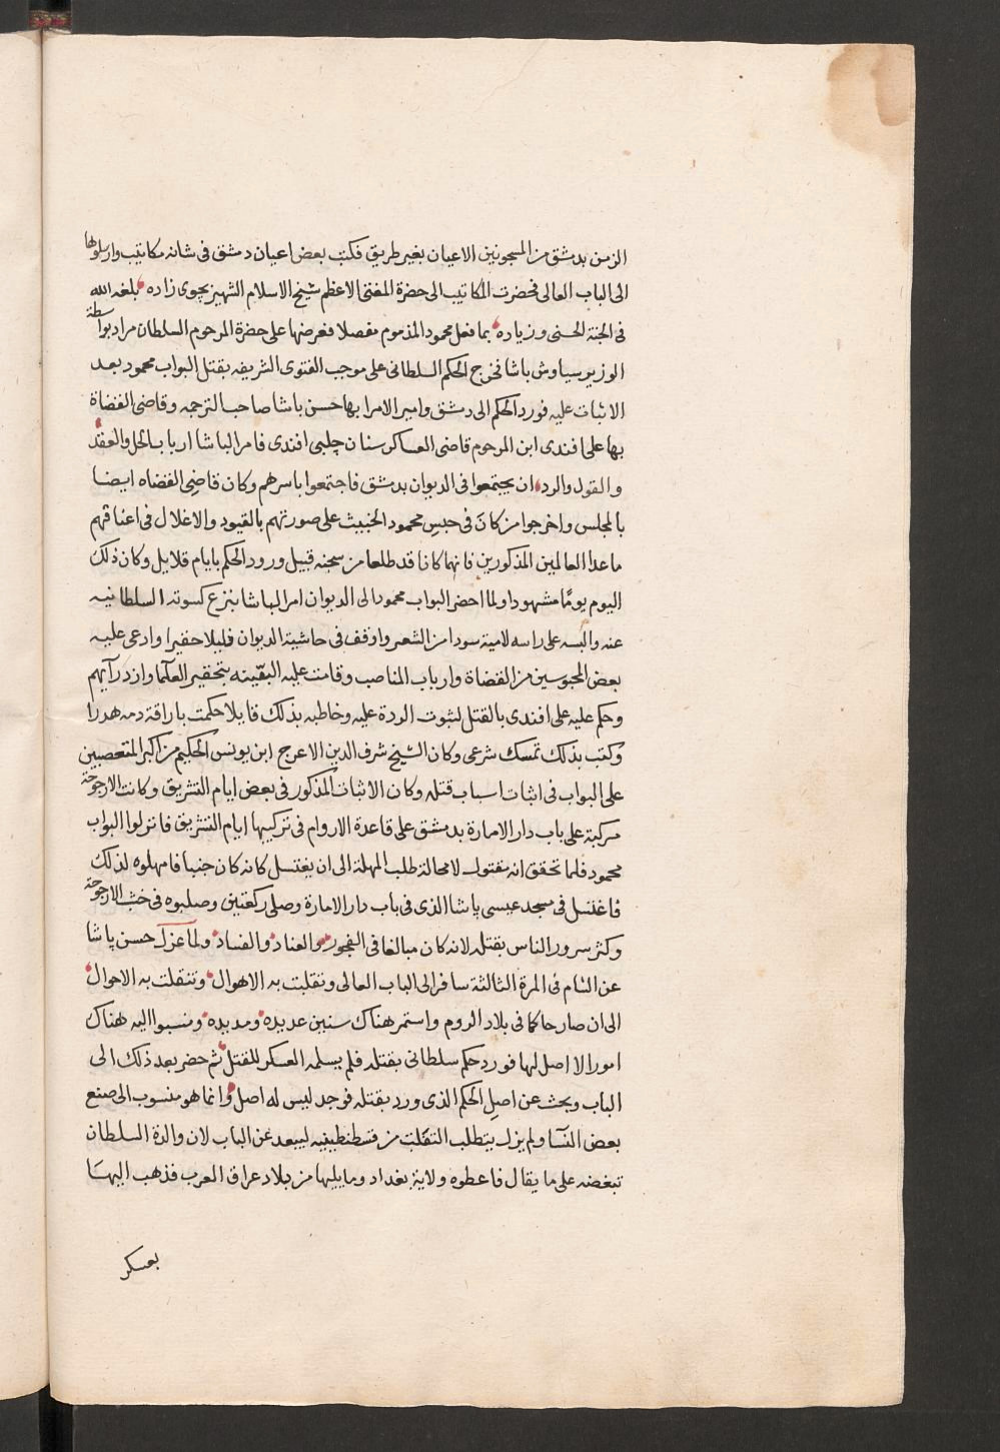 الزمن بدمشق من المسجونين الاعيان بغير طريق فكتب بعض اعيان دمشق فى شانه مكاتيب وارسلوها
الى الباب العالى فحضرت المكاتيب الى حضرة المفتى الاعظم شيخ الاسلام الشهير بجوى زاده بلغه الله
فى الجنة الحسنى وزياده بما فعل محمود المذموم مفصلا فعرضها على حضرة المرحوم السلطان مراد بواسطة
الوزير سياوش باشا فخرج الحكم السلطانى على موجب الفتوى الشريفه بقتل البواب محمود بعد
الاثبات عليه فورد الحكم الى دمشق وامير الامرا بها حسن باشا صاحب الترجمه وقاضى القضاة
بها على افندى ابن المرحوم قاضى العساكر سنان چلبى افندى فامر الباشا ارباب الحل والعقد
والقول والرد ان يجتمعوا فى الديوان بدمشق فاجتمعوا باسرهم وكان قاضى القضاه ايضا
بالمجلس واخرجوا من كان فى حبس محمود الخبيث على صورتهم بالقيود والاغلال فى اعناقهم
ماعدا العالمين المذكورين فانهما كانا قد طلعا من سجنه قبيل ورود الحكم بايام قلايل وكان ذلك
اليوم يوما مشهودا ولما احضر البواب محمود الى الديوان امر الباشا بنزع كسوته السلطانيه
عنه والبسه على راسه لامية سودا من الشعر واوقف فى حاشية الديوان قليلا حقيرا وادعى عليه
بعض المحبوسين من القضاة وارباب المناصب وقامت عليه البينه بتحقير العلما وازدرآيهم
وحكم عليه على افندى بالقتل لثبوت الردة عليه وخاطبه بذلك قايلا حكمت باراقة دمه هدرا
وكتب بذلك تمسك شرعى وكان الشيخ شرف الدين الاعرج ابن يونس الحكيم من اكبر المتعصبين
على البواب فى اثبات اسباب قتله وكان الاثبات المذكور فى بعض ايام التشريق وكانت الارجوحة
مركبة على باب دار الامارة بدمشق على قاعدة الاروام فى تركيبها ايام التشريق فانزلوا البواب
محمود فلما تحقق انه مقتول لا محالة طلب المهلة الى ان يغتسل كانه كان جنبا فامهلوه لذلك
فاغتسل فى مسجد عيسى باشا الذى فى باب دار الامارة وصلى ركعتين وصلبوه فى خشب الارجوحة
وكثر سرور الناس بقتله لانه كان مبالغا فى الفجور والعناد والفساد ولما عزل حسن باشا
عن الشام فى المرة الثالثة سافر الى الباب العالى وتقلبت به الاهوال وتنقلت به الاحوال
الى ان صار حاكما فى بلاد الروم واستمر هناك سنين عديده ومديده ونسبوا اليه هناك
امورا لا اصل لها فورد حكم سلطانى بقتله فلم يسلمه العسكر للقتل ثم حضر بعد ذلك الى
الباب وبحث عن اصل الحكم الذى ورد بقتله فوجد ليس له اصل وانما هو منسوب الى صنع
بعض النسآ ولم يزل يتطلب التفلت من قسطنطينيه ليبعد عن الباب لان والدة السلطان
تبغضه على ما يقال فاعطوه ولاية بغداد وما يليها من بلاد عراق العرب فذهب اليها
بعسكر